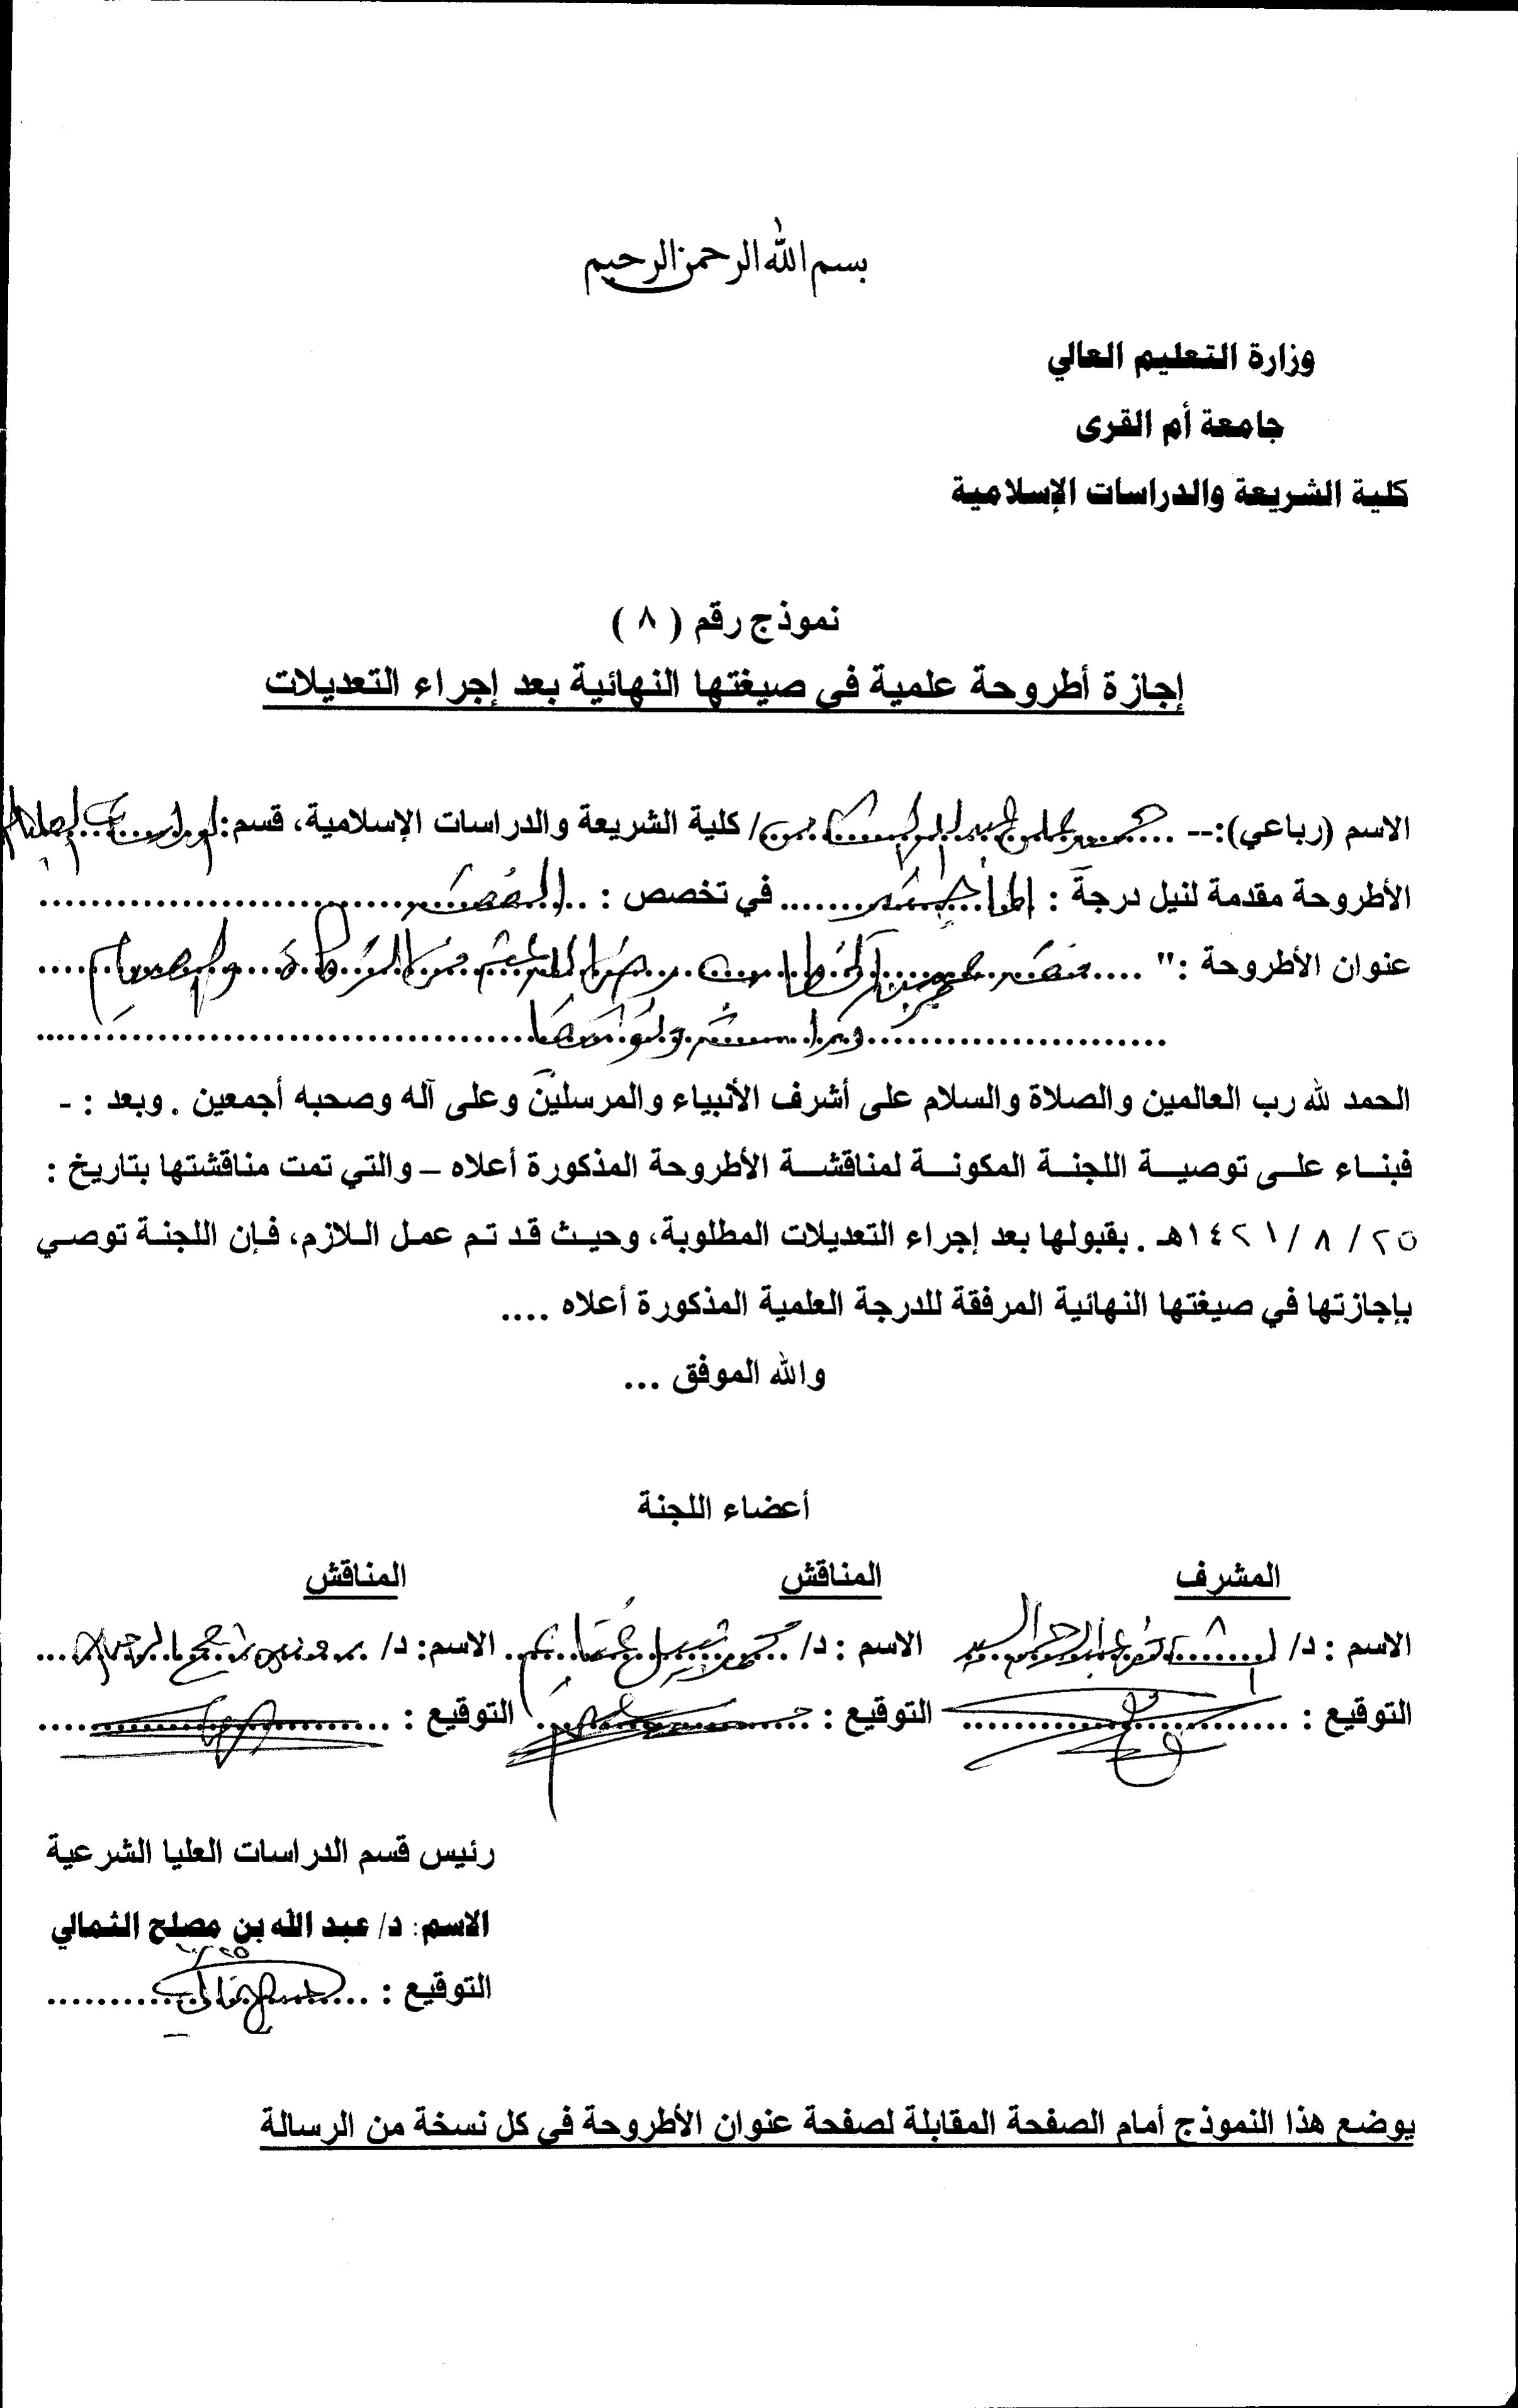 بسم الله الرحمن الرحيم
وزارة التعليم العالي
جامعة أم القرى
كلية الشريعة والدراسات الإسلامية
نموذج رقم ( ٨ )
إجازة أطروحة علمية في صيغتها النهائية بعد إجراء التعديلات
الاسم (رباعي):-- / كلية الشريعة والدراسات الإسلامية، قسم: الدراسات العليا
الأطروحة مقدمة لنيل درجة : الماجستير في تخصص : الفقه
عنوان الأطروحة :" فقه عمر بن الخطاب رضي الله عنه في الزكاة والصيام
دراسة وتوثيقا
الحمد لله رب العالمين والصلاة والسلام على أشرف الأنبياء والمرسلين وعلى آله وصحبه أجمعين . وبعد : -
فبناء على توصية اللجنة المكونة لمناقشة الأطروحة المذكورة أعلاه – والتي تمت مناقشتها بتاريخ :
٢٥ / ٨ / ١٤٢١هـ . بقبولها بعد إجراء التعديلات المطلوبة، وحيث قد تم عمل اللازم، فإن اللجنة توصي
بإجازتها في صيغتها النهائية المرفقة للدرجة العلمية المذكورة أعلاه ....
والله الموفق ...
أعضاء اللجنة
المشرف المناقش المناقش
الاسم : د/ عبد الرحمن السيد الاسم : د/ محمد نبيل غنايم الاسم: د/
التوقيع : التوقيع : التوقيع :
رئيس قسم الدراسات العليا الشرعية
الاسم: د/ عبد الله بن مصلح الثمالي
التوقيع :
يوضع هذا النموذج أمام الصفحة المقابلة لصفحة عنوان الأطروحة في كل نسخة من الرسالة